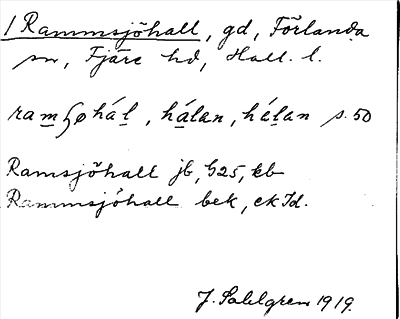 1 Rammsjöhall, gd, Förlanda
sn, Fjäre hd, Hall. l.
hálan, s. 50
Ramsjöhall jb, G25, kb
Rammsjöhall bek, ekId.
J. Sahlgren 1919.